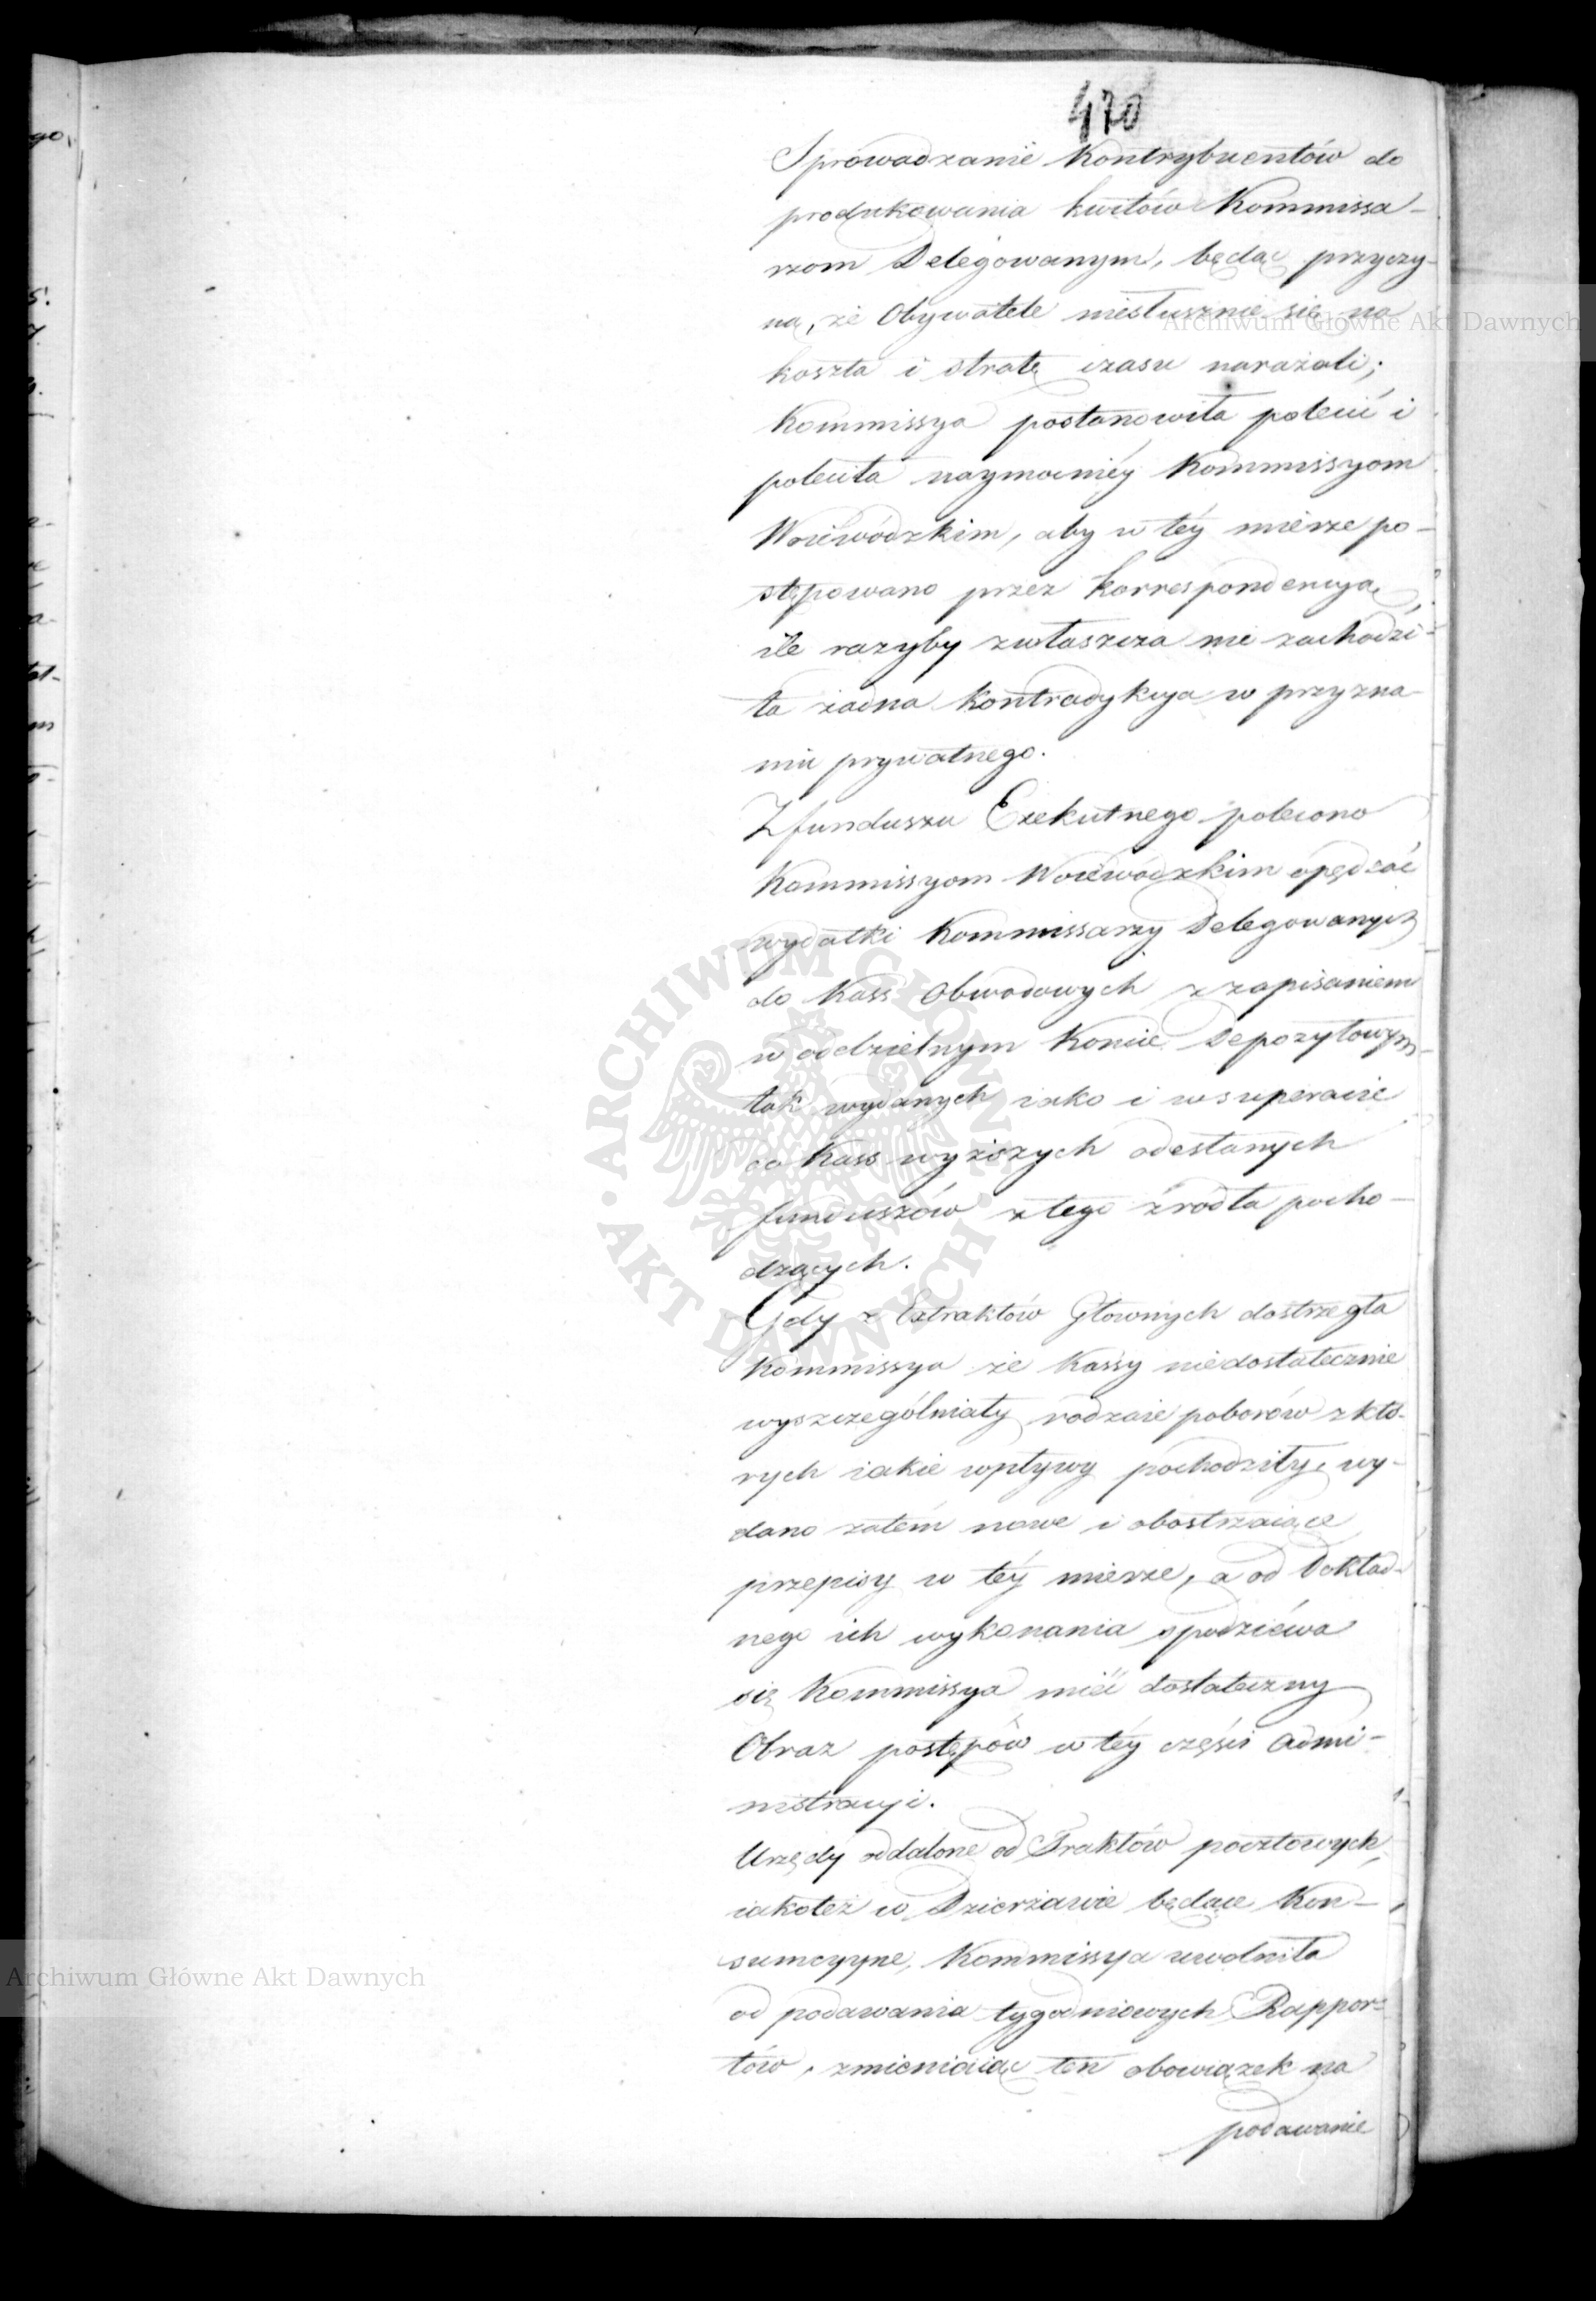 470
Sprowadzanie Kontrybuentów do
produkowania kwitów Kommissa-
rzom Delegowanym, będąc przyczy-
ną, że Obywatele niesłusznie się na
koszta i stratę czasu narażali;
Kommissya postanowiła polecić i
poleciła naymocniéy Kommissyom
Woiewódzkim, aby w téy mierze po-
stępowano przez korrespondencyą,
ile razyby zwłaszcza nie zachodzi-
ła żadna Kontradykcya w przyzna-
niu prywatnego.
Z funduszu Exekutnego polecono
Kommissyom Woiewódzkim opędzać
wydatki Kommissarzy Delegowanych
do Kass Obwodowych z zapisaniem
w oddzielnym Koncie Depozytowym
tak wydanych iako i w superacie
do Kass wyższych odesłanych
funduszów z tego źródła pocho-
dzących.
Gdy z Extraktów Głownych dostrzegła
Kommissya że Kassy niedostatecznie
wyszczególniały rodzaie poborów z któ-
rych iakie wpływy pochodziły, wy-
dano zatém nowe i obostrzaiące
przepisy w téy mierze, a od Dokład-
nego ich wykonania spodziéwa
się Kommissya mieć dostateczny
Obraz postępów w téy części Admi-
nistracyi.
Urzędy oddalone od Traktów pocztowych,
iakoteż w Dzierżawie będące Kon-
sumcyyne, Kommissya uwolniła
od podawania tygodniowych Rappor-
tów, zmieniaiąc ten obowiązek na
podawanie
Archiwum Główne Akt Dawnych
Archiwum Główne Akt Dawnych
ARCHIWUM GŁÓWNE · AKT DAWNYCH ·